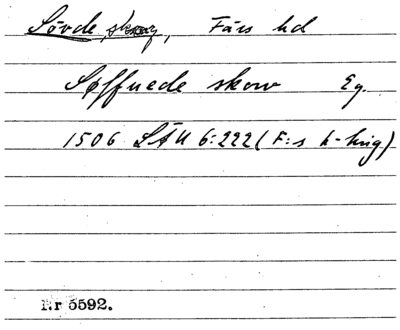 Sövde skog, Färs hd
Søffuede skow Eg.
1506 LÄU 6:222 (F:s h-ting)
Nr 5592.